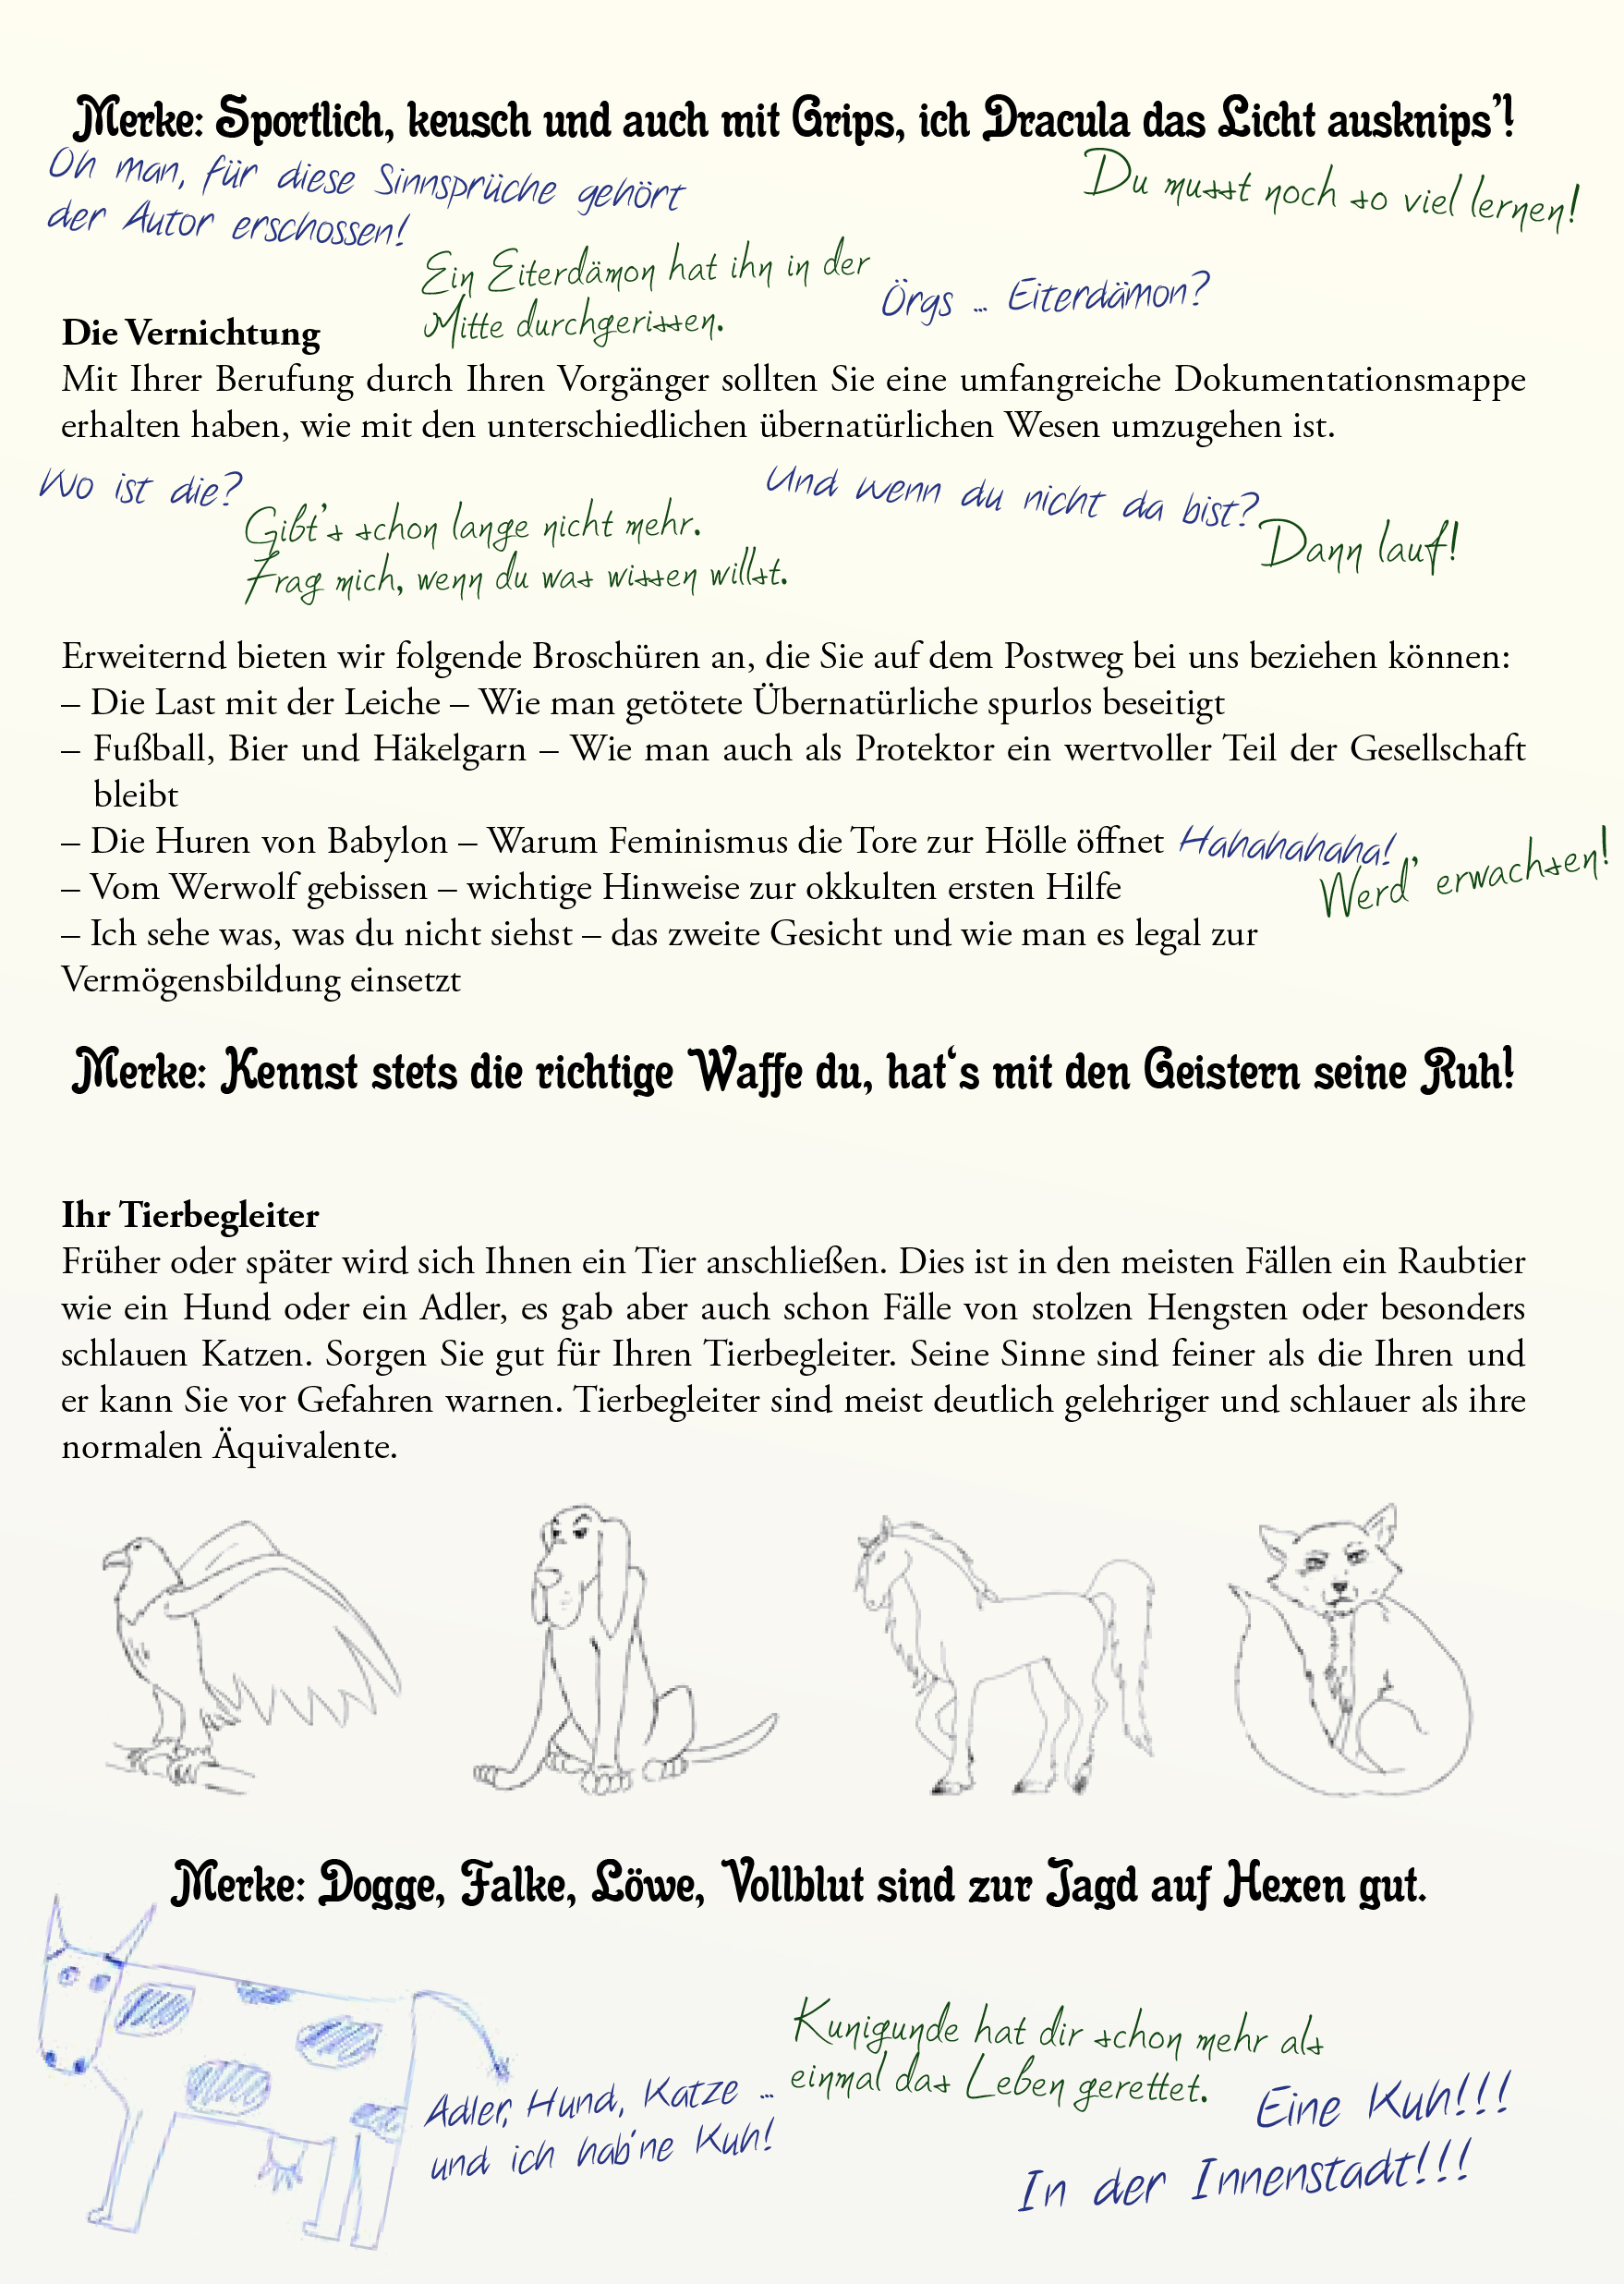 Merke: Sportlich, keusch und auch mit Grips, ich Dracula das Licht ausknips’!
Oh man, für diese Sinnsprüche gehört
der Autor erschossen!
Du musst noch so viel lernen!
Ein Eiterdämon hat ihn in der
Mitte durchgerissen.
Örgs ... Eiterdämon?
Die Vernichtung
Mit Ihrer Berufung durch Ihren Vorgänger sollten Sie eine umfangreiche Dokumentationsmappe
erhalten haben, wie mit den unterschiedlichen übernatürlichen Wesen umzugehen ist.
Wo ist die?
Gibt's schon lange nicht mehr.
Frag mich, wenn du was wissen willst.
Und wenn du nicht da bist?
Dann lauf!
Erweiternd bieten wir folgende Broschüren an, die Sie auf dem Postweg bei uns beziehen können:
– Die Last mit der Leiche – Wie man getötete Übernatürliche spurlos beseitigt
– Fußball, Bier und Häkelgarn – Wie man auch als Protektor ein wertvoller Teil der Gesellschaft
bleibt
– Die Huren von Babylon – Warum Feminismus die Tore zur Hölle öffnet Hahahahaha!
Werd' erwachsen!
– Vom Werwolf gebissen – wichtige Hinweise zur okkulten ersten Hilfe
– Ich sehe was, was du nicht siehst – das zweite Gesicht und wie man es legal zur
Vermögensbildung einsetzt
Merke: Kennst stets die richtige Waffe du, hat‘s mit den Geistern seine Ruh!
Ihr Tierbegleiter
Früher oder später wird sich Ihnen ein Tier anschließen. Dies ist in den meisten Fällen ein Raubtier
wie ein Hund oder ein Adler, es gab aber auch schon Fälle von stolzen Hengsten oder besonders
schlauen Katzen. Sorgen Sie gut für Ihren Tierbegleiter. Seine Sinne sind feiner als die Ihren und
er kann Sie vor Gefahren warnen. Tierbegleiter sind meist deutlich gelehriger und schlauer als ihre
normalen Äquivalente.
Merke: Dogge, Falke, Löwe, Vollblut sind zur Jagd auf Hexen gut.
Adler, Hund, Katze ...
und ich hab'ne Kuh!
Kunigunde hat dir schon mehr als
einmal das Leben gerettet.
Eine Kuh!!!
In der Innenstadt!!!